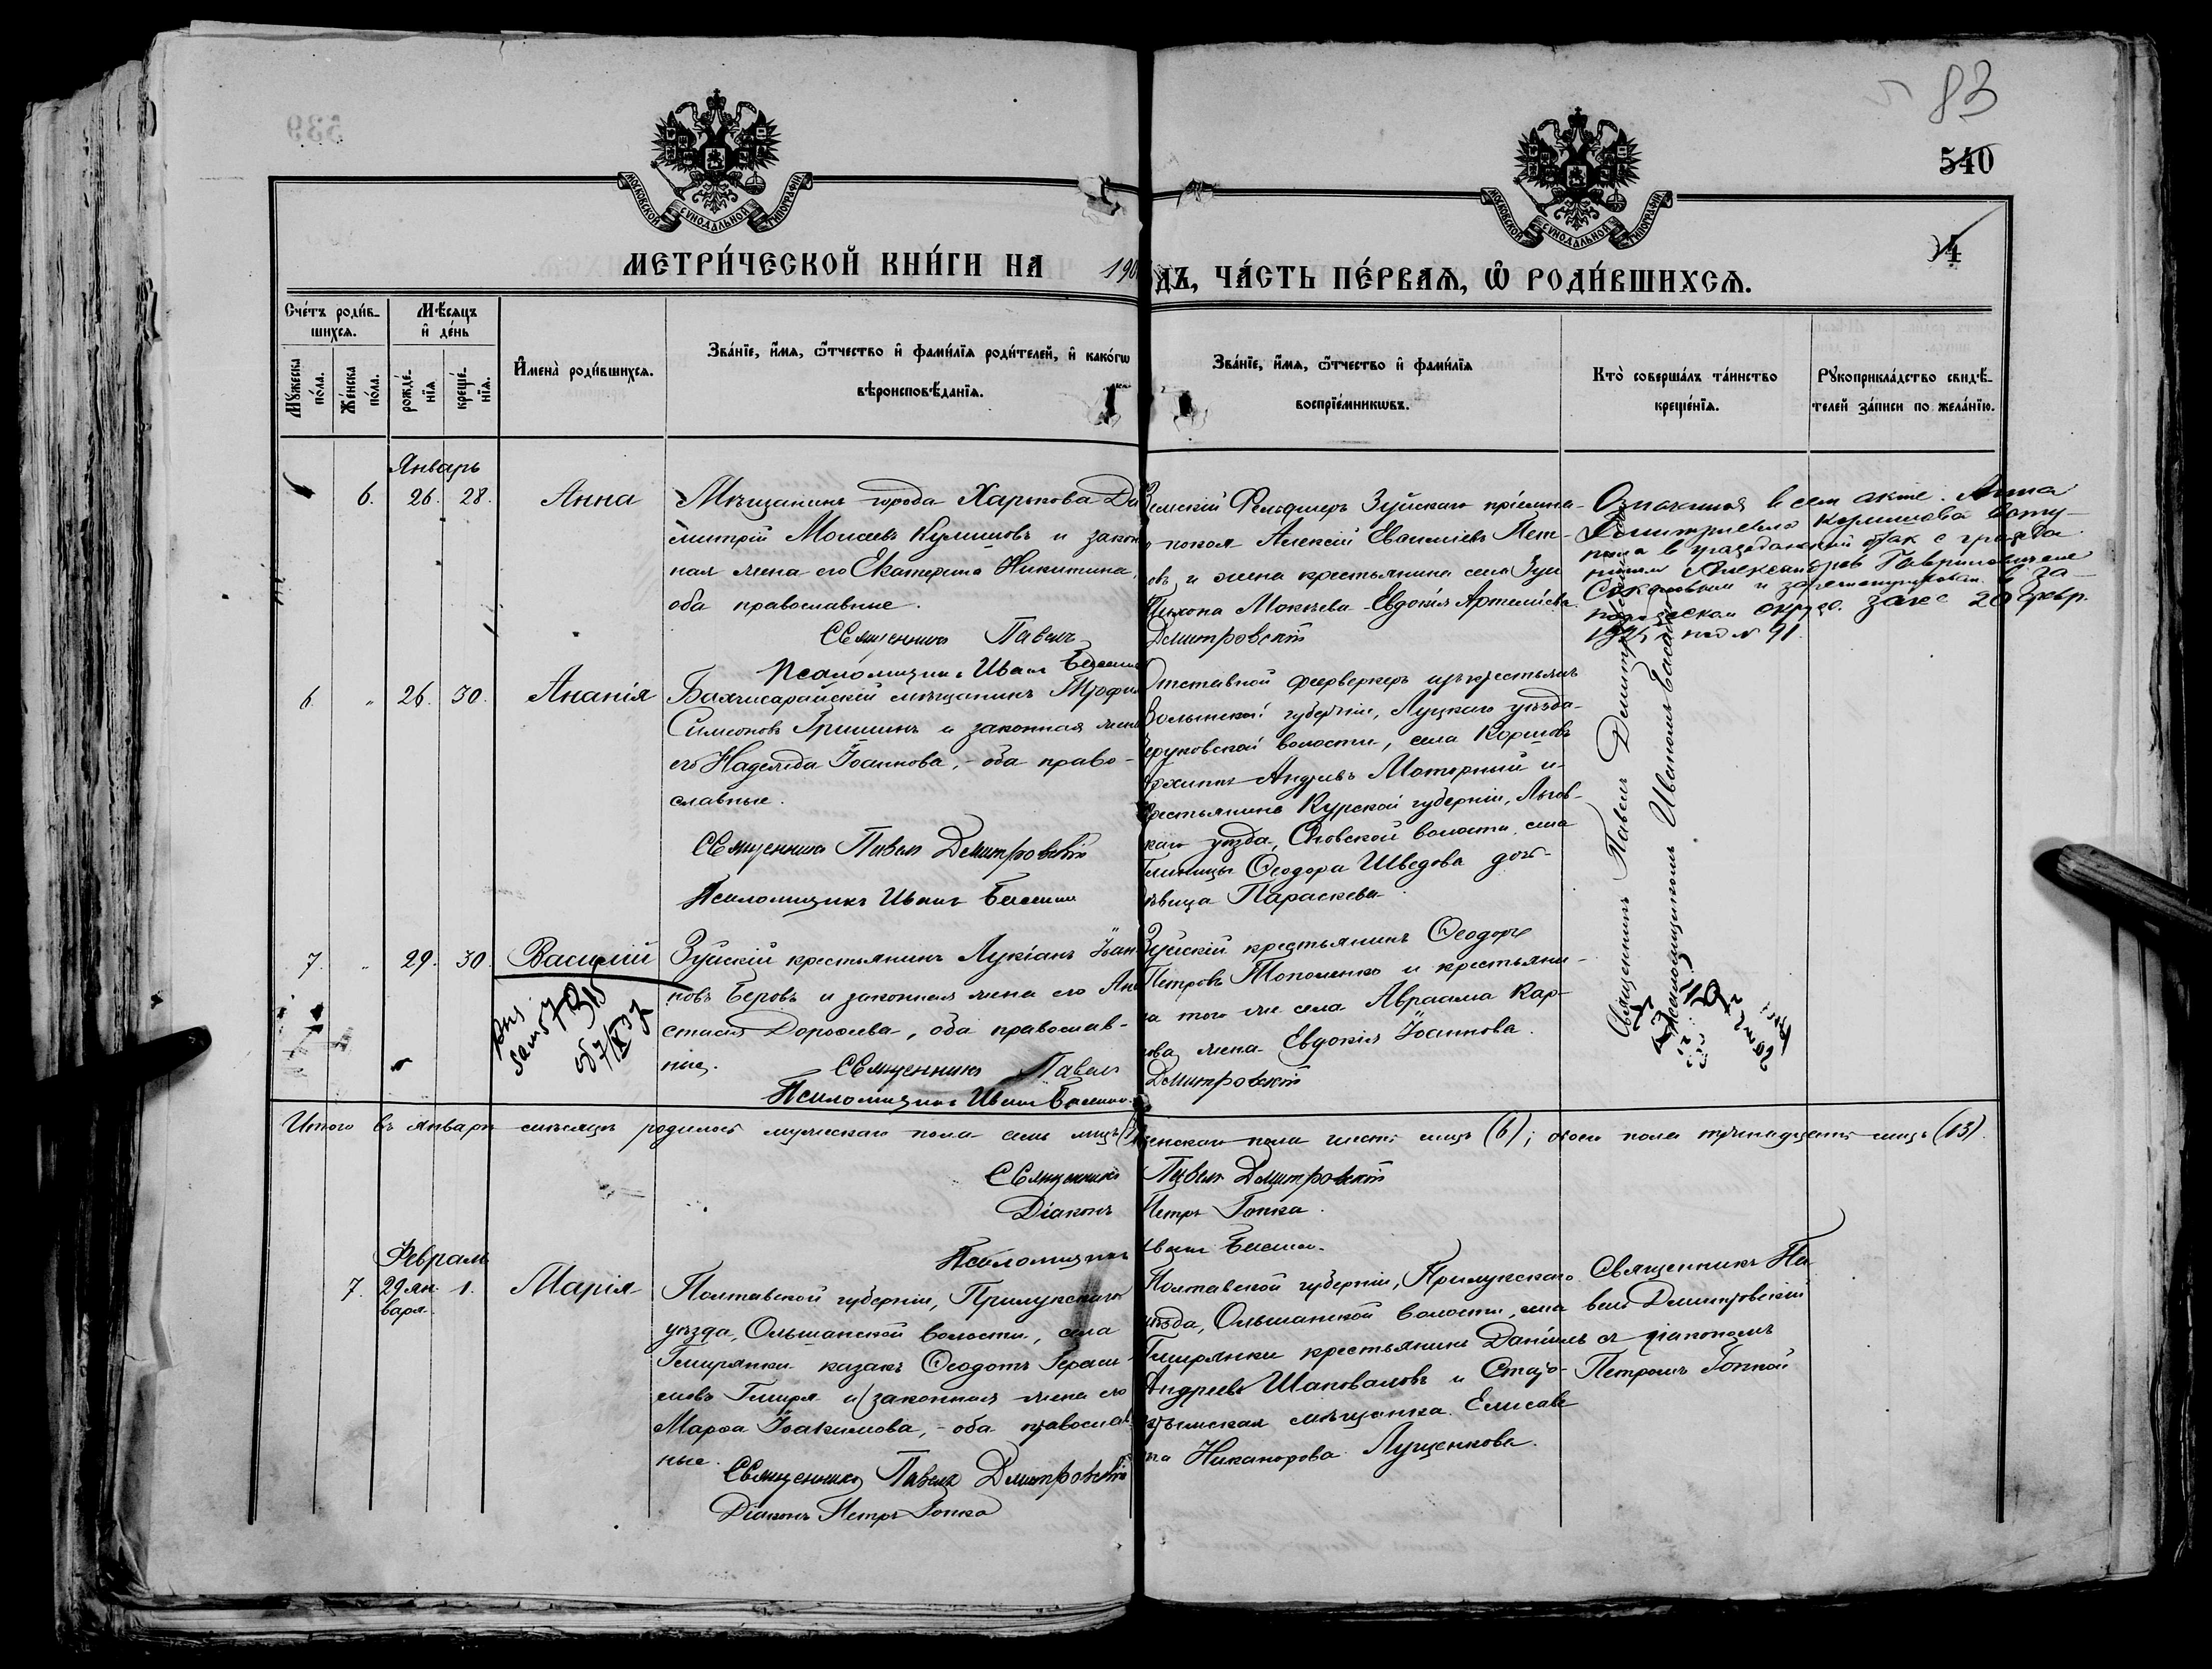 83
540
4
МОСКОВСКОЙ СѴНОДАЛЬНОЙ ТИПОГРАФІИ
МОСКОВСКОЙ СѴНОДАЛЬНОЙ ТИПОГРАФІИ
МЕТРИ́ЧЕСКОЙ КНИ́ГИ НА 190
ДЪ, ЧА́СТЬ ПЕ́РВАѦ, Ѽ РОДИ́ВШИХСѦ.
Сче́тъ роди́в-
шихся.
Мѣ́сяцъ
и҆ де́нь
Мꙋ́жеска
по́ла.
Же́нска
по́ла.
рожде́-
нїя
креще́-
нїя.
И҆мена̀ роди́вшихся.
Зва́нїе, и҆́мя, ѻ҆́тчество и҆ фами́лїя роди́телей, и҆ како́гѡ
вѣроисповѣ́данїя.
Зва́нїе, и҆́мя, ѻ҆́тчество и҆ фами́лїя
воспрїе́мникѡвъ.
Кто̀ соверша́лъ та́инство
креще́нїя.
Рꙋкоприкла́дство свидѣ́-
телей за́писи по жела́нїю.
Январь
6. 26. 28. Анна
Мѣщанинъ города Харькова Ди
митрій Моисеевъ Кулишовъ и закон
ная жена его Екатерина Никитина,
оба православные.
Священникъ Павелъ
Псаломщикъ Иванъ
Земскій Фельдшеръ Зуйскаго пріемна-
го покоя Алексій Евсиміевъ Пет-
овъ и жена крестьянина села Зуи
Тихона Мокеева Евдокія Артеміева.
Дмитровскій
Означенная в сем акте Анна
Дмитриевна Кулишова всту-
пила в гражданский брак с гражда
нином Александров Гавриловичем
Соколовым и зарегистрирован в за-
округа. загсе 20 февр.
1925 под N 91.
6 " 26. 30. Ананія
Бахчисарайскій мѣщанинъ Трофим
Симеоновъ Гришинъ и законная жена
его Надежда Іоаннова, - оба право-
славные.
Священникъ Павелъ Дмитровскій
Псаломщикъ Иванъ
Отставной фейерверкеръ изъ крестьянъ
Волынской губерніи, Луцкаго уѣзда
волости, села Коршовъ
Архипъ Андреевъ Моторный и
крестьянина Курской губерніи, Льгов-
каго уѣзда, волости, села
Ѳеодора Шведова дочь
дѣвица Параскева
Священникъ Павелъ
Псаломщикомъ Иваномъ
7. " 29. 30. Василій
Зуйскій крестьянинъ Лукіанъ Іоан
новъ Беровъ и законная жена его Ана
стасія Дороѳеева, оба православ-
ные.
Священникъ Павелъ
Псаломщикъ Иванъ
Зуйскій крестьянинъ Ѳеодоръ
Петровъ Тополенко и крестьяни-
на того же села Авраама Кар-
пова жена Евдокія Іоаннова.
Дмитровскій
Итого въ январѣ мѣсяцѣ родилось мужескаго пола семь лицъ (7)
женскаго пола шесть лицъ (6); обоего пола тринадцать лицъ (13).
Священникъ Павелъ Дмитровскій
Діаконъ Петръ Гопка.
Псаломщикъ Иванъ
Февраль
7. 29 ян- 1. Марія
варя
Полтавской губерніи, Прилукскаго
уѣзда, Ольшанской волости, села
Гмирянки казакъ Ѳеодотъ Гераси-
мовъ Гмиря и законная жена его
Марѳа Іоакимова, - оба православ
ные.
Священникъ Павелъ Дмитровскій
Діаконъ Петръ Гопка
Полтавской губерніи, Прилукскаго
уѣзда, Ольшанской волости, села
Гмирянки крестьянинъ Даніилъ
Андреевъ Шаповаловъ и Старо-
крымская мѣщанка Елисаве
та Никанорова Лущенкова.
Священникъ Па
велъ Дмитровскій
съ діакономъ
Петромъ Гопкой